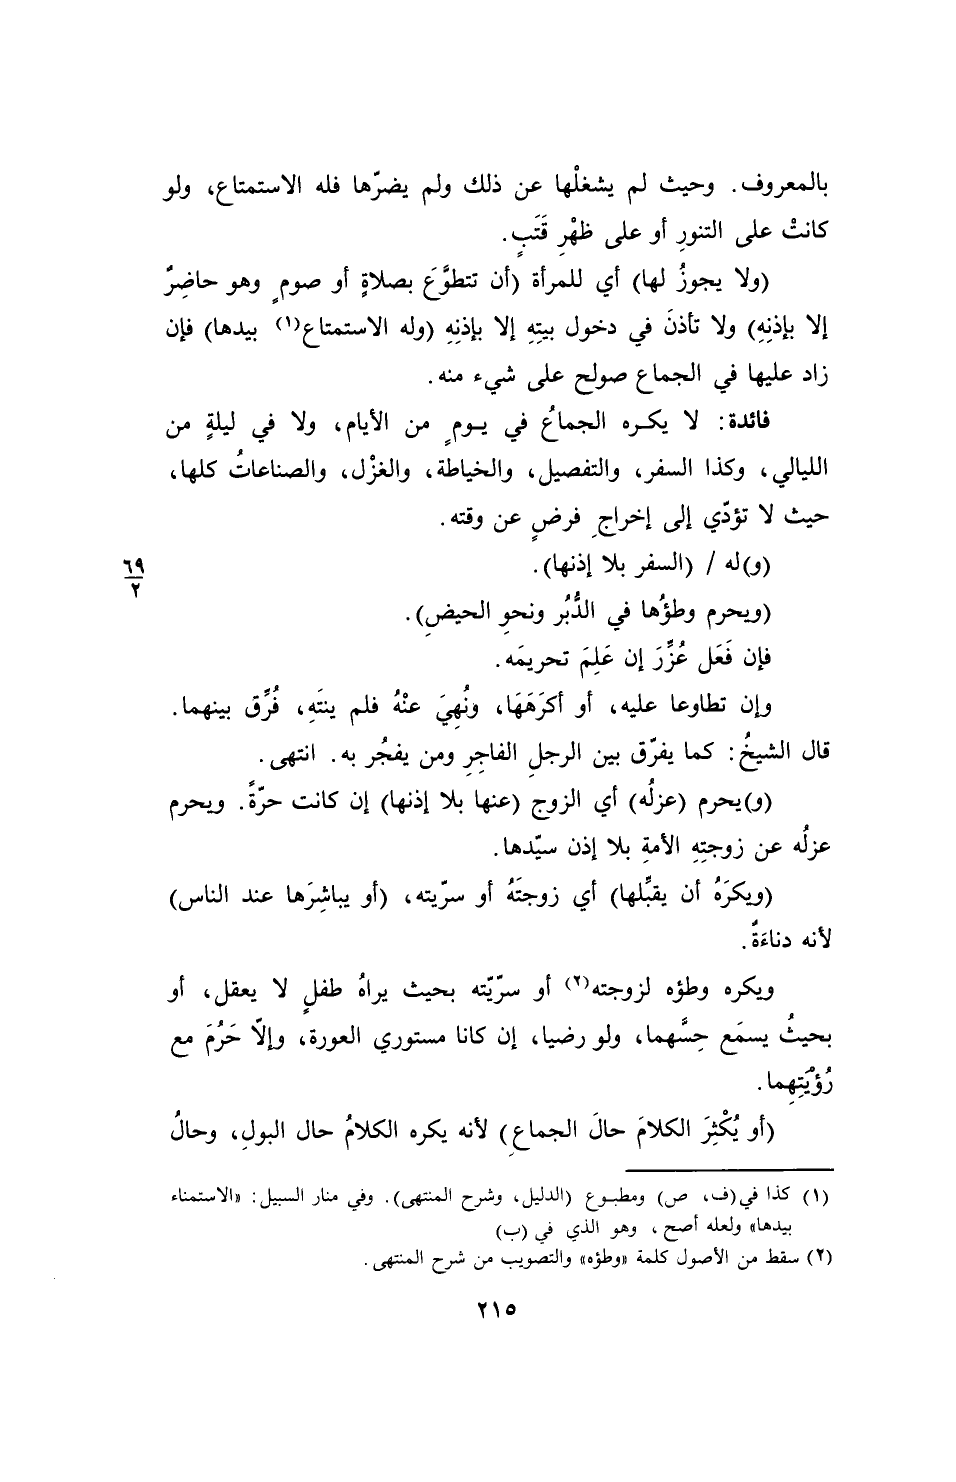 بالمعروف. وحيث لم يشغلْها عن ذلك ولم يضرّها فله الاستمتاع، ولو
كانتْ على التنورِ أو على ظهْرِ قَتَبٍ.
(ولا يجوزُ لها) أي للمرأة (أن تتطوَّعَ بصلاةٍ أو صومٍ وهو حاضِرٌ
إلا بإذنِهِ) ولا تأذنَ في دخول بيتِهِ إلا بإذنِهِ (وله الاستمتاع(١) بيدها) فإن
زاد عليها في الجماع صولح على شيء منه.
فائدة: لا يكره الجماعُ في يومٍ من الأيام، ولا في ليلةٍ من
الليالي، وكذا السفر، والتفصيل، والخياطة، والغزْل، والصناعاتُ كلها،
حيث لا تؤدّي إلى إخراجِ فرضٍ عن وقته.
(و)له / (السفر بلا إذنها).
٦٩
٢
(ويحرم وطؤُها في الدُّبُر ونحوِ الحيضِ).
فإن فَعَل عُزِّرَ إن عَلِمَ تحريمَه.
وإن تطاوعا عليه، أو أكرَهَهَا، ونُهِيَ عنْهُ فلم ينتَهِ، فُرِّق بينهما.
قال الشيخُ: كما يفرّق بين الرجلِ الفاجِرِ ومن يفجُر به. انتهى.
(و)يحرم (عزلُه) أي الزوج (عنها بلا إذنها) إن كانت حرّةً. ويحرم
عزلُه عن زوجتِهِ الأمةِ بلا إذن سيّدها.
(ويكرَهُ أن يقبِّلها) أي زوجتَهُ أو سرّيته، (أو يباشِرَها عند الناس)
لأنه دناءَةٌ.
ويكره وطؤه لزوجته(٢) أو سرّيّته بحيث يراهُ طفلٍ لا يعقل، أو
بحيثُ يسمَع حِسَّهما، ولو رضيا، إن كانا مستوري العورة، وإلّا حَرُمَ مع
رُؤيَتِهِما.
(أو يُكْثِرَ الكلامَ حالَ الجماعِ) لأنه يكره الكلامُ حال البولِ، وحالُ
(١) كذا في(ف، ص) ومطبوع (الدليل، وشرح المنتهى). وفي منار السبيل: «الاستمناء
بيدها» ولعله أصح، وهو الذي في (ب)
(٢) سقط من الأصول كلمة «وطؤه» والتصويب من شرح المنتهى.
٢١٥